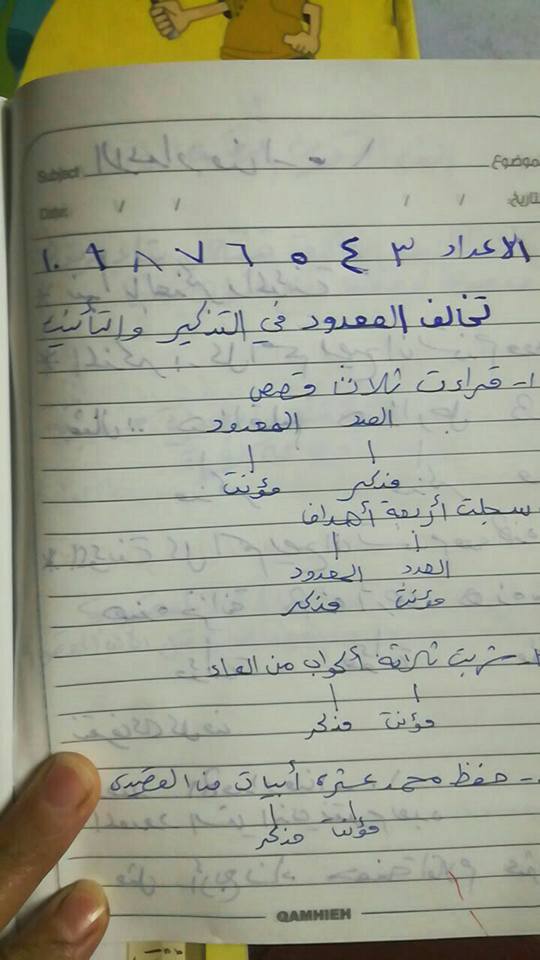 Subject موضوع
Date: / / / / تاريخ:
الاعداد ٣ ٤ ٥ ٦ ٧ ٨ ٩ ١٠
تخالف المعدود في التذكير والتأنيث
١- قراءت ثلاث قصص
العدد المعدود
مذكر مؤنث
سجلت أربعة أهداف
العدد المعدود
مؤنث مذكر
شربت ثلاثة أكواب من الماء
مؤنث مذكر
- حفظ محمد عشرة أبيات من القصيدة
مؤنث مذكر
QAMHIEH